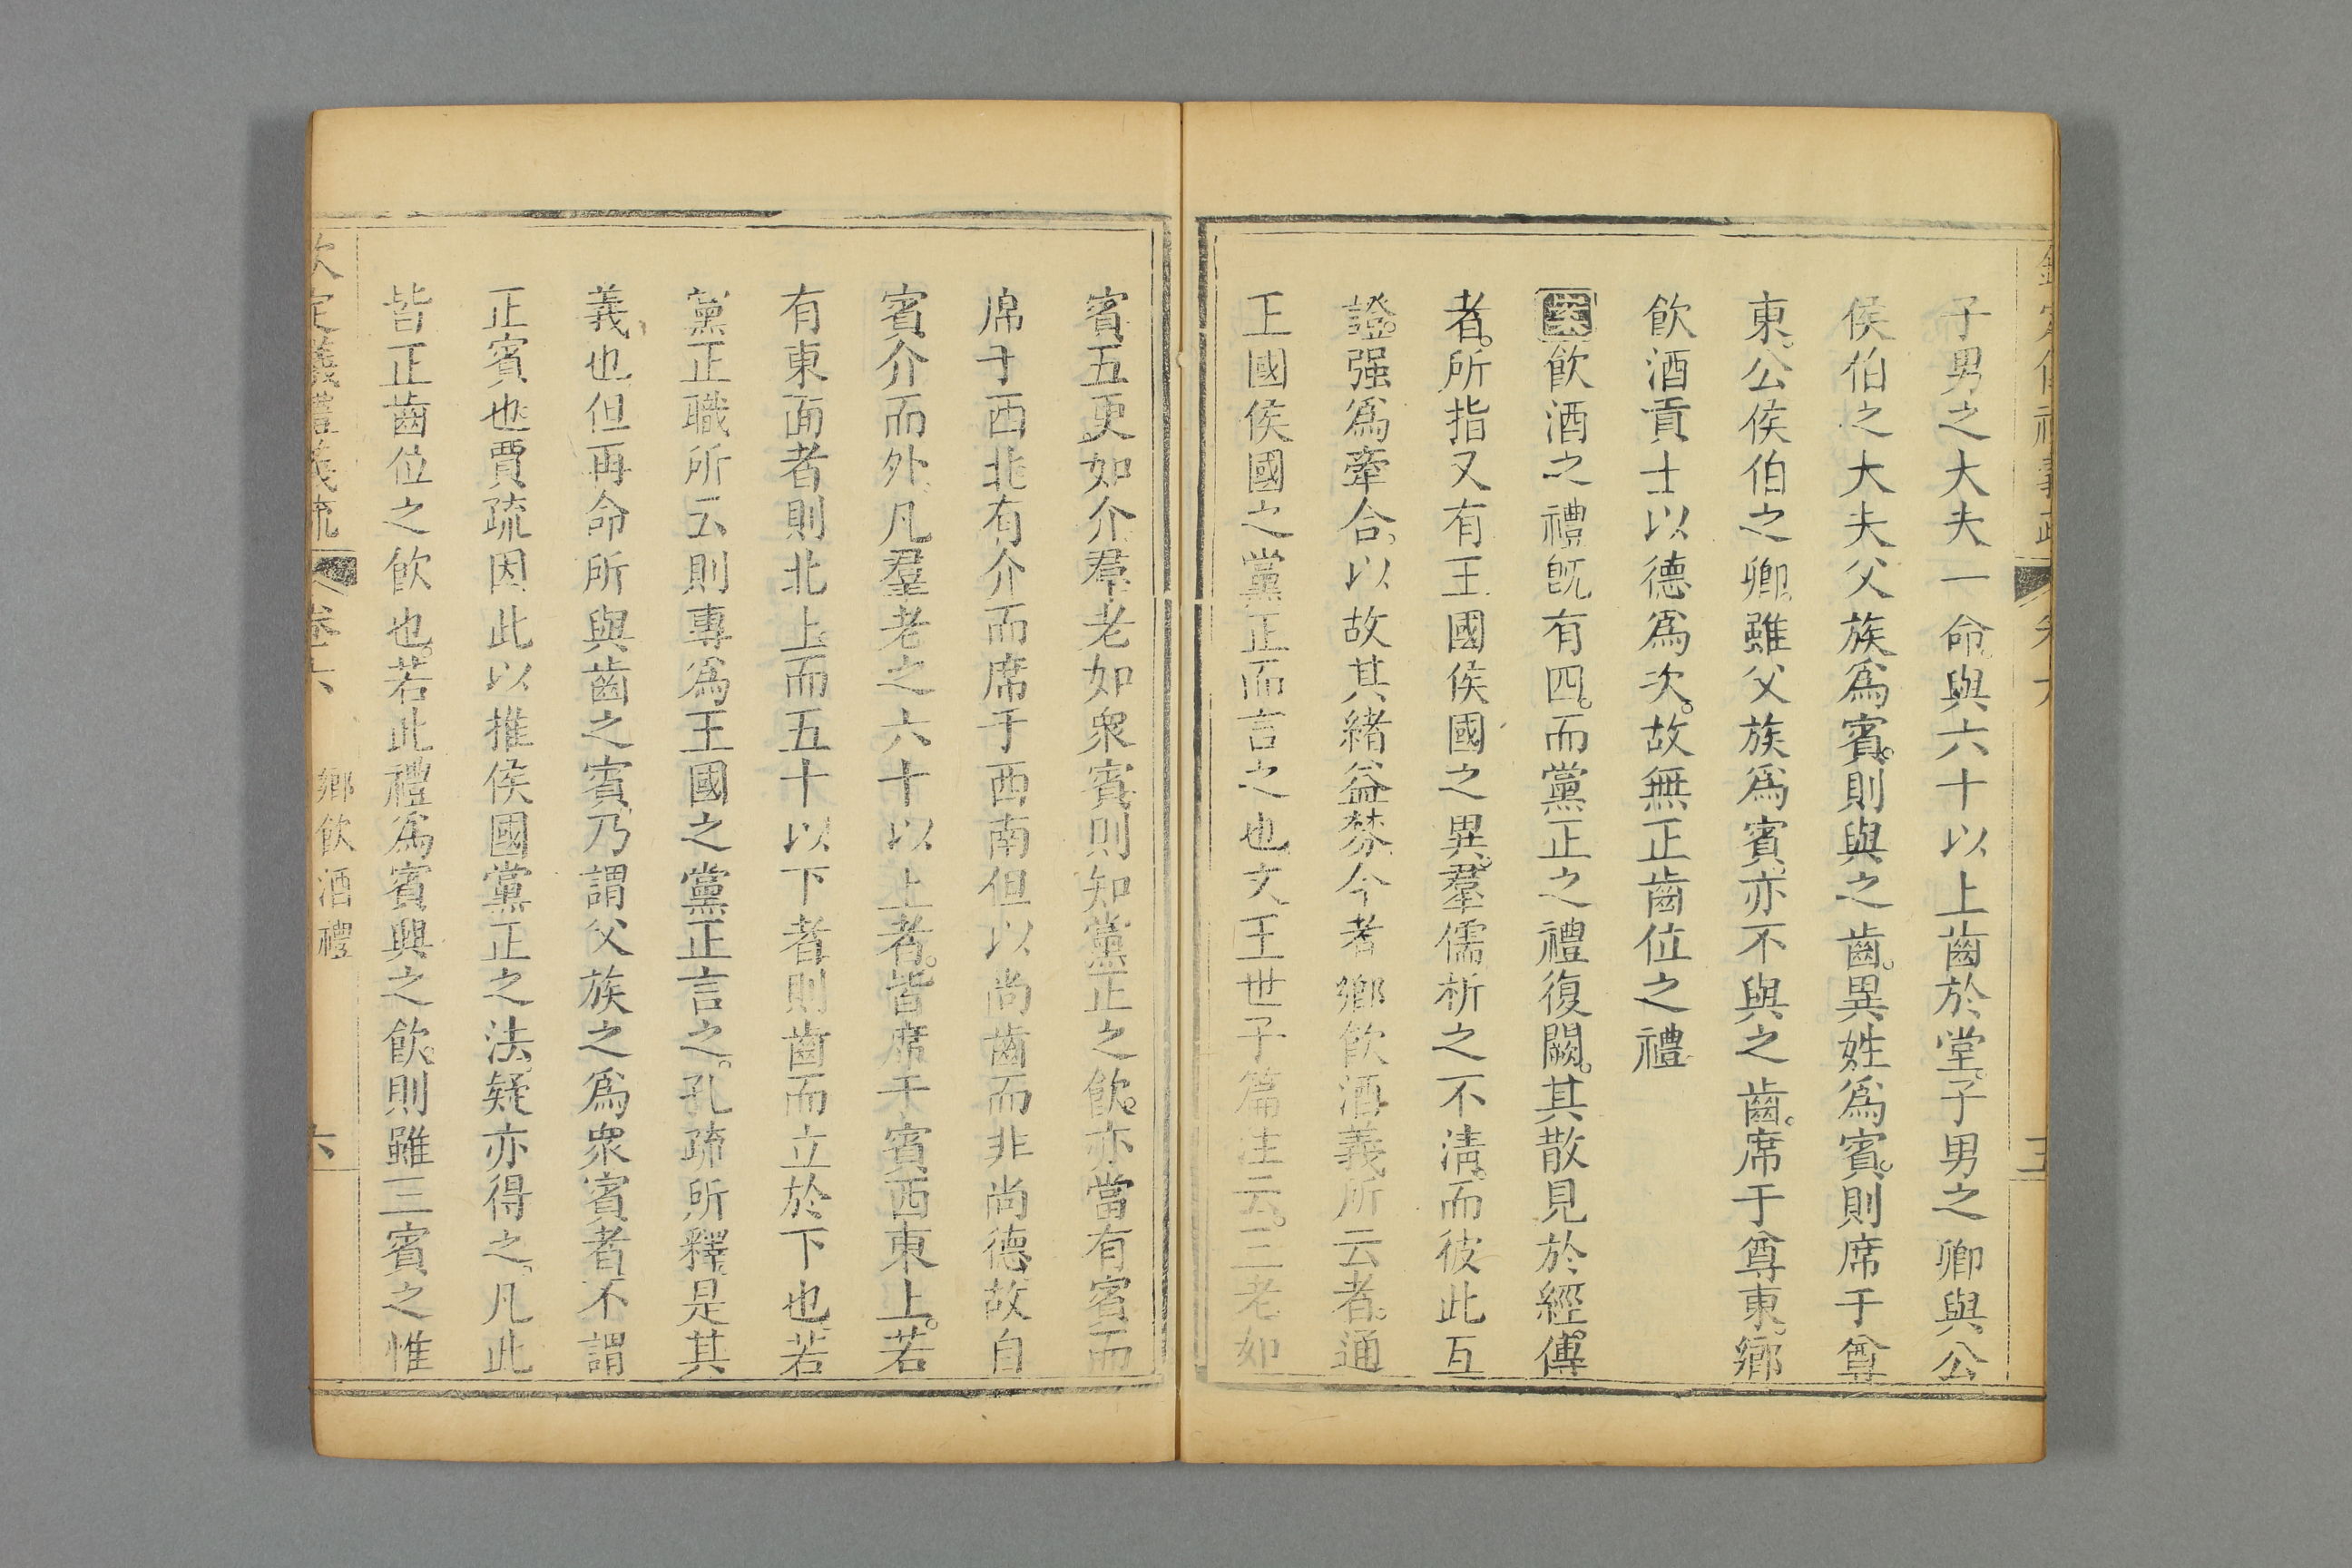 子男之大夫一命與六十以上齒於堂。子男之卿與公
侯伯之大夫父族爲賓。則與之齒。異姓爲賓。則席于尊
東。公侯伯之卿。雖父族爲賓。亦不與之齒。席于尊東。鄉
飲酒貢士以德爲次。故無正齒位之禮
案飲酒之禮旣有四。而黨正之禮復闕。其散見於經傳
者。所指又有王國侯國之異。羣儒析之不淸。而彼此互
證。强爲牽合。以故其緒益棼。今考鄉飲酒義所云者。通
王國侯國之黨正而言之也。文王世子篇注云。三老如
賓。五更如介。羣老如衆賓。則知黨正之飲。亦當有賓而
席于西北。有介而席于西南。但以尚齒而非尚德。故自
賓介而外。凡羣老之六十以上者。皆席于賓西東上。若
有東面者則北上。而五十以下者。則齒而立於下也。若
黨正職所云。則專爲王國之黨正言之。孔疏所釋。是其
義也。但再命所與齒之賓。乃謂父族之爲衆賓者。不謂
正賓也。賈疏因此以推侯國黨正之法。疑亦得之。凡此
皆正齒位之飲也。若此禮爲賓興之飲。則雖三賓之惟
欽定義禮義疏 卷六 鄉飲酒禮 六